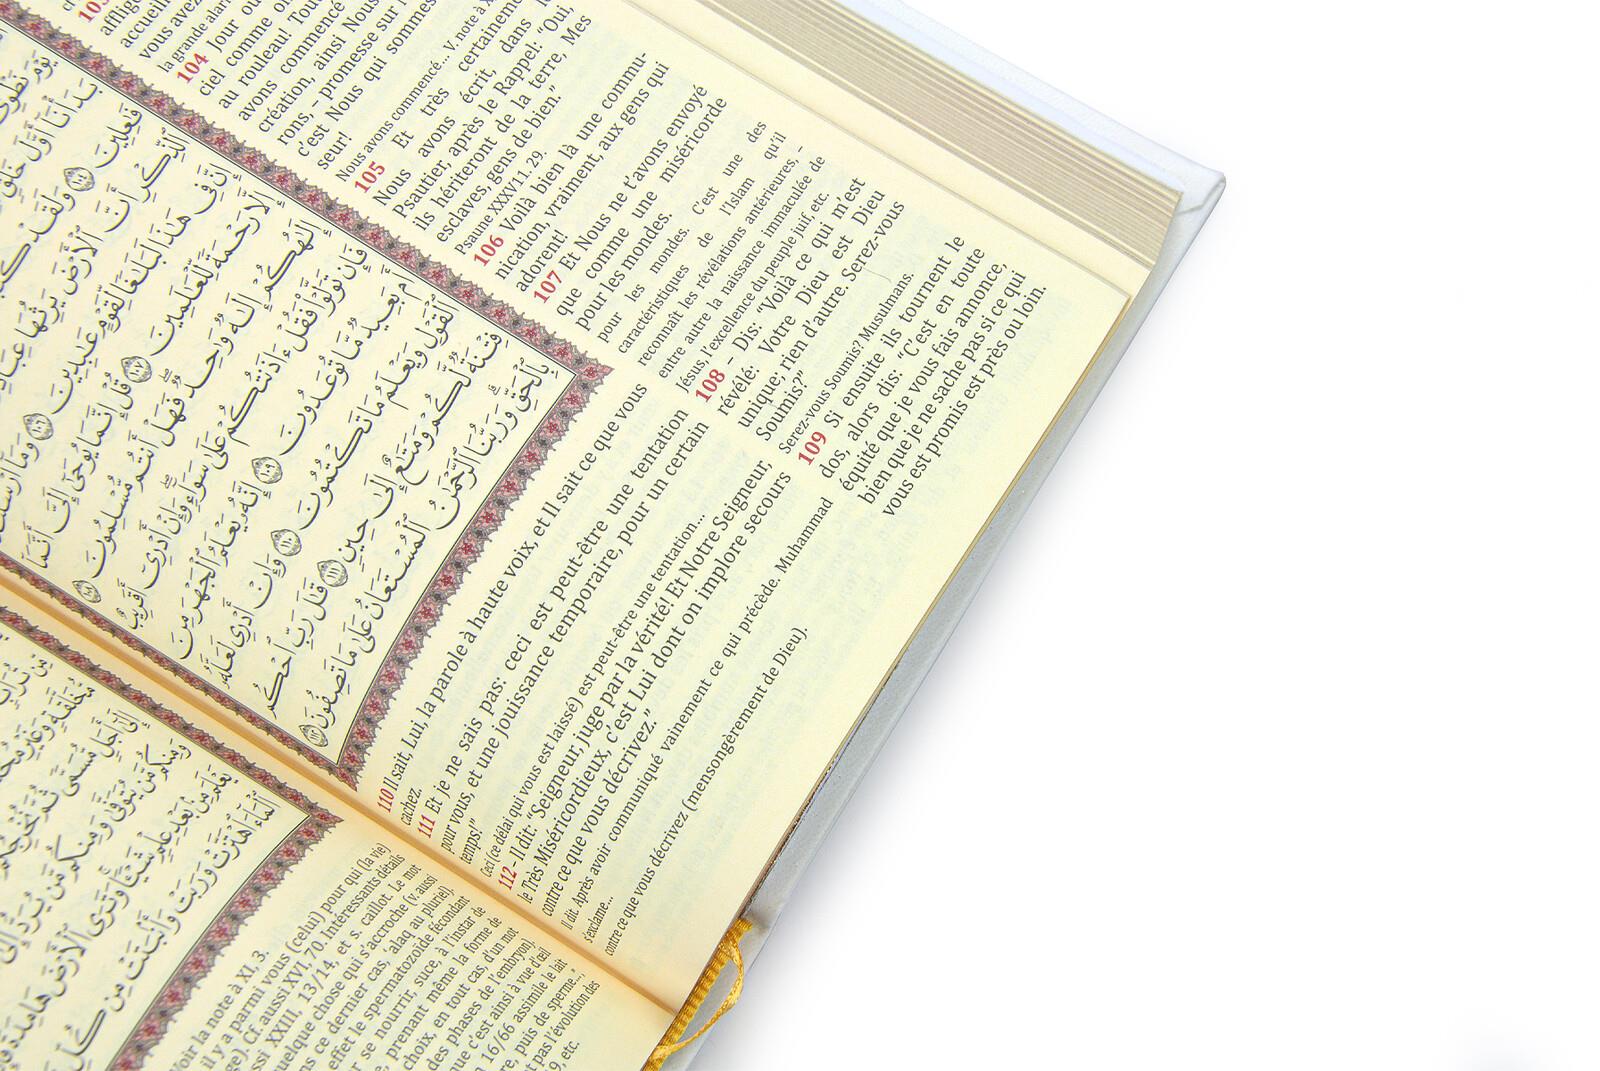 يَوْمَ نَطْوِى
بَدَأْنَآ أَوَّلَ خَلْقٍ
فَٰعِلِينَ ١٠٤ وَلَقَدْ
ٱلذِّكْرِ أَنَّ ٱلْأَرْضَ يَرِثُهَا
إِنَّ فِى هَٰذَا لَبَلَٰغًا لِّقَوْمٍ عَٰبِدِينَ ١٠٦ وَمَآ
إِلَّا رَحْمَةً لِّلْعَٰلَمِينَ ١٠٧ قُلْ إِنَّمَا يُوحَىٰٓ إِلَىَّ أَنَّمَآ
إِلَٰهُكُمْ إِلَٰهٌ وَٰحِدٌ فَهَلْ أَنتُم مُّسْلِمُونَ ١٠٨
فَإِن تَوَلَّوْا۟ فَقُلْ ءَاذَنتُكُمْ عَلَىٰ سَوَآءٍ وَإِنْ أَدْرِىٓ أَقَرِيبٌ
أَم بَعِيدٌ مَّا تُوعَدُونَ ١٠٩ إِنَّهُۥ يَعْلَمُ ٱلْجَهْرَ مِنَ
ٱلْقَوْلِ وَيَعْلَمُ مَا تَكْتُمُونَ ١١٠ وَإِنْ أَدْرِى لَعَلَّهُۥ
فِتْنَةٌ لَّكُمْ وَمَتَٰعٌ إِلَىٰ حِينٍ ١١١ قَٰلَ رَبِّ ٱحْكُم
بِٱلْحَقِّ وَرَبُّنَا ٱلرَّحْمَٰنُ ٱلْمُسْتَعَانُ عَلَىٰ مَا تَصِفُونَ ١١٢
103
accueill
vous avez
la grande alarm
104 Jour où
ciel comme on
au rouleau! Tout
avons commencé
création, ainsi Nous
rons, – promesse sur
c'est Nous qui sommes
seur!
Nous avons commencé... V. note à X
105 Et très certainement
Nous avons écrit, dans le
Psautier, après le Rappel: "Oui,
ils hériteront de la terre, Mes
esclaves, gens de bien."
Psaume XXXVII. 29.
106 Voilà bien là une commu-
nication, vraiment, aux gens qui
adorent!
107 Et Nous ne t'avons envoyé
que comme une miséricorde
pour les mondes.
pour les mondes. C'est une des
caractéristiques de l'Islam qu'il
reconnaît les révélations antérieures, –
entre autre la naissance immaculée de
Jésus, l'excellence du peuple juif, etc.
108 – Dis: "Voilà ce qui m'est
révélé: Votre Dieu est Dieu
unique; rien d'autre. Serez-vous
Soumis?"
Serez-vous Soumis? Musulmans.
109 Si ensuite ils tournent le
dos, alors dis: "C'est en toute
équité que je vous fais annonce,
bien que je ne sache pas si ce qui
vous est promis est près ou loin.
110 Il sait, Lui, la parole à haute voix, et Il sait ce que vous
cachez.
111 Et je ne sais pas: ceci est peut-être une tentation
pour vous, et une jouissance temporaire, pour un certain
temps!"
Ceci (ce délai qui vous est laissé) est peut-être une tentation...
112 – Il dit: "Seigneur, juge par la vérité! Et Notre Seigneur,
le Très Miséricordieux, c'est Lui dont on implore secours
contre ce que vous décrivez."
Il dit. Après avoir communiqué vainement ce qui précède. Muhammad
s'exclame...
contre ce que vous décrivez (mensongèrement de Dieu).
إِلَىٰٓ أَجَلٍ مُّسَمًّى ثُمَّ نُخْرِجُكُمْ
وَمِنكُم مَّن يُتَوَفَّىٰ وَمِنكُم مَّن يُرَدُّ إِلَىٰٓ
يَعْلَمَ مِنۢ بَعْدِ عِلْمٍ شَيْـًٔا وَتَرَى ٱلْأَرْضَ هَامِدَةً
ٱلْمَآءَ ٱهْتَزَّتْ وَرَبَتْ وَأَنۢبَتَتْ مِن كُلِّ
Voir la note à XI, 3.
il y a parmi vous (celui) pour qui (la vie)
ge). Cf. aussi XVI, 70. Intéressants détails
ssi XXIII, 13/14, et s. caillot. Le mot
quelque chose qui s'accroche (v. aussi
ns ce dernier cas, 'alaq au pluriel).
effet le spermatozoïde fécondant
r se nourrir, suce, à l'instar de
, prenant même la forme de
choix, en tout cas, d'un mot
des phases de l'embryon),
que c'est ainsi à vue d'œil
16/66 assimile le lait
re, puis de sperme...",
t pas l'évolution des
9, etc.